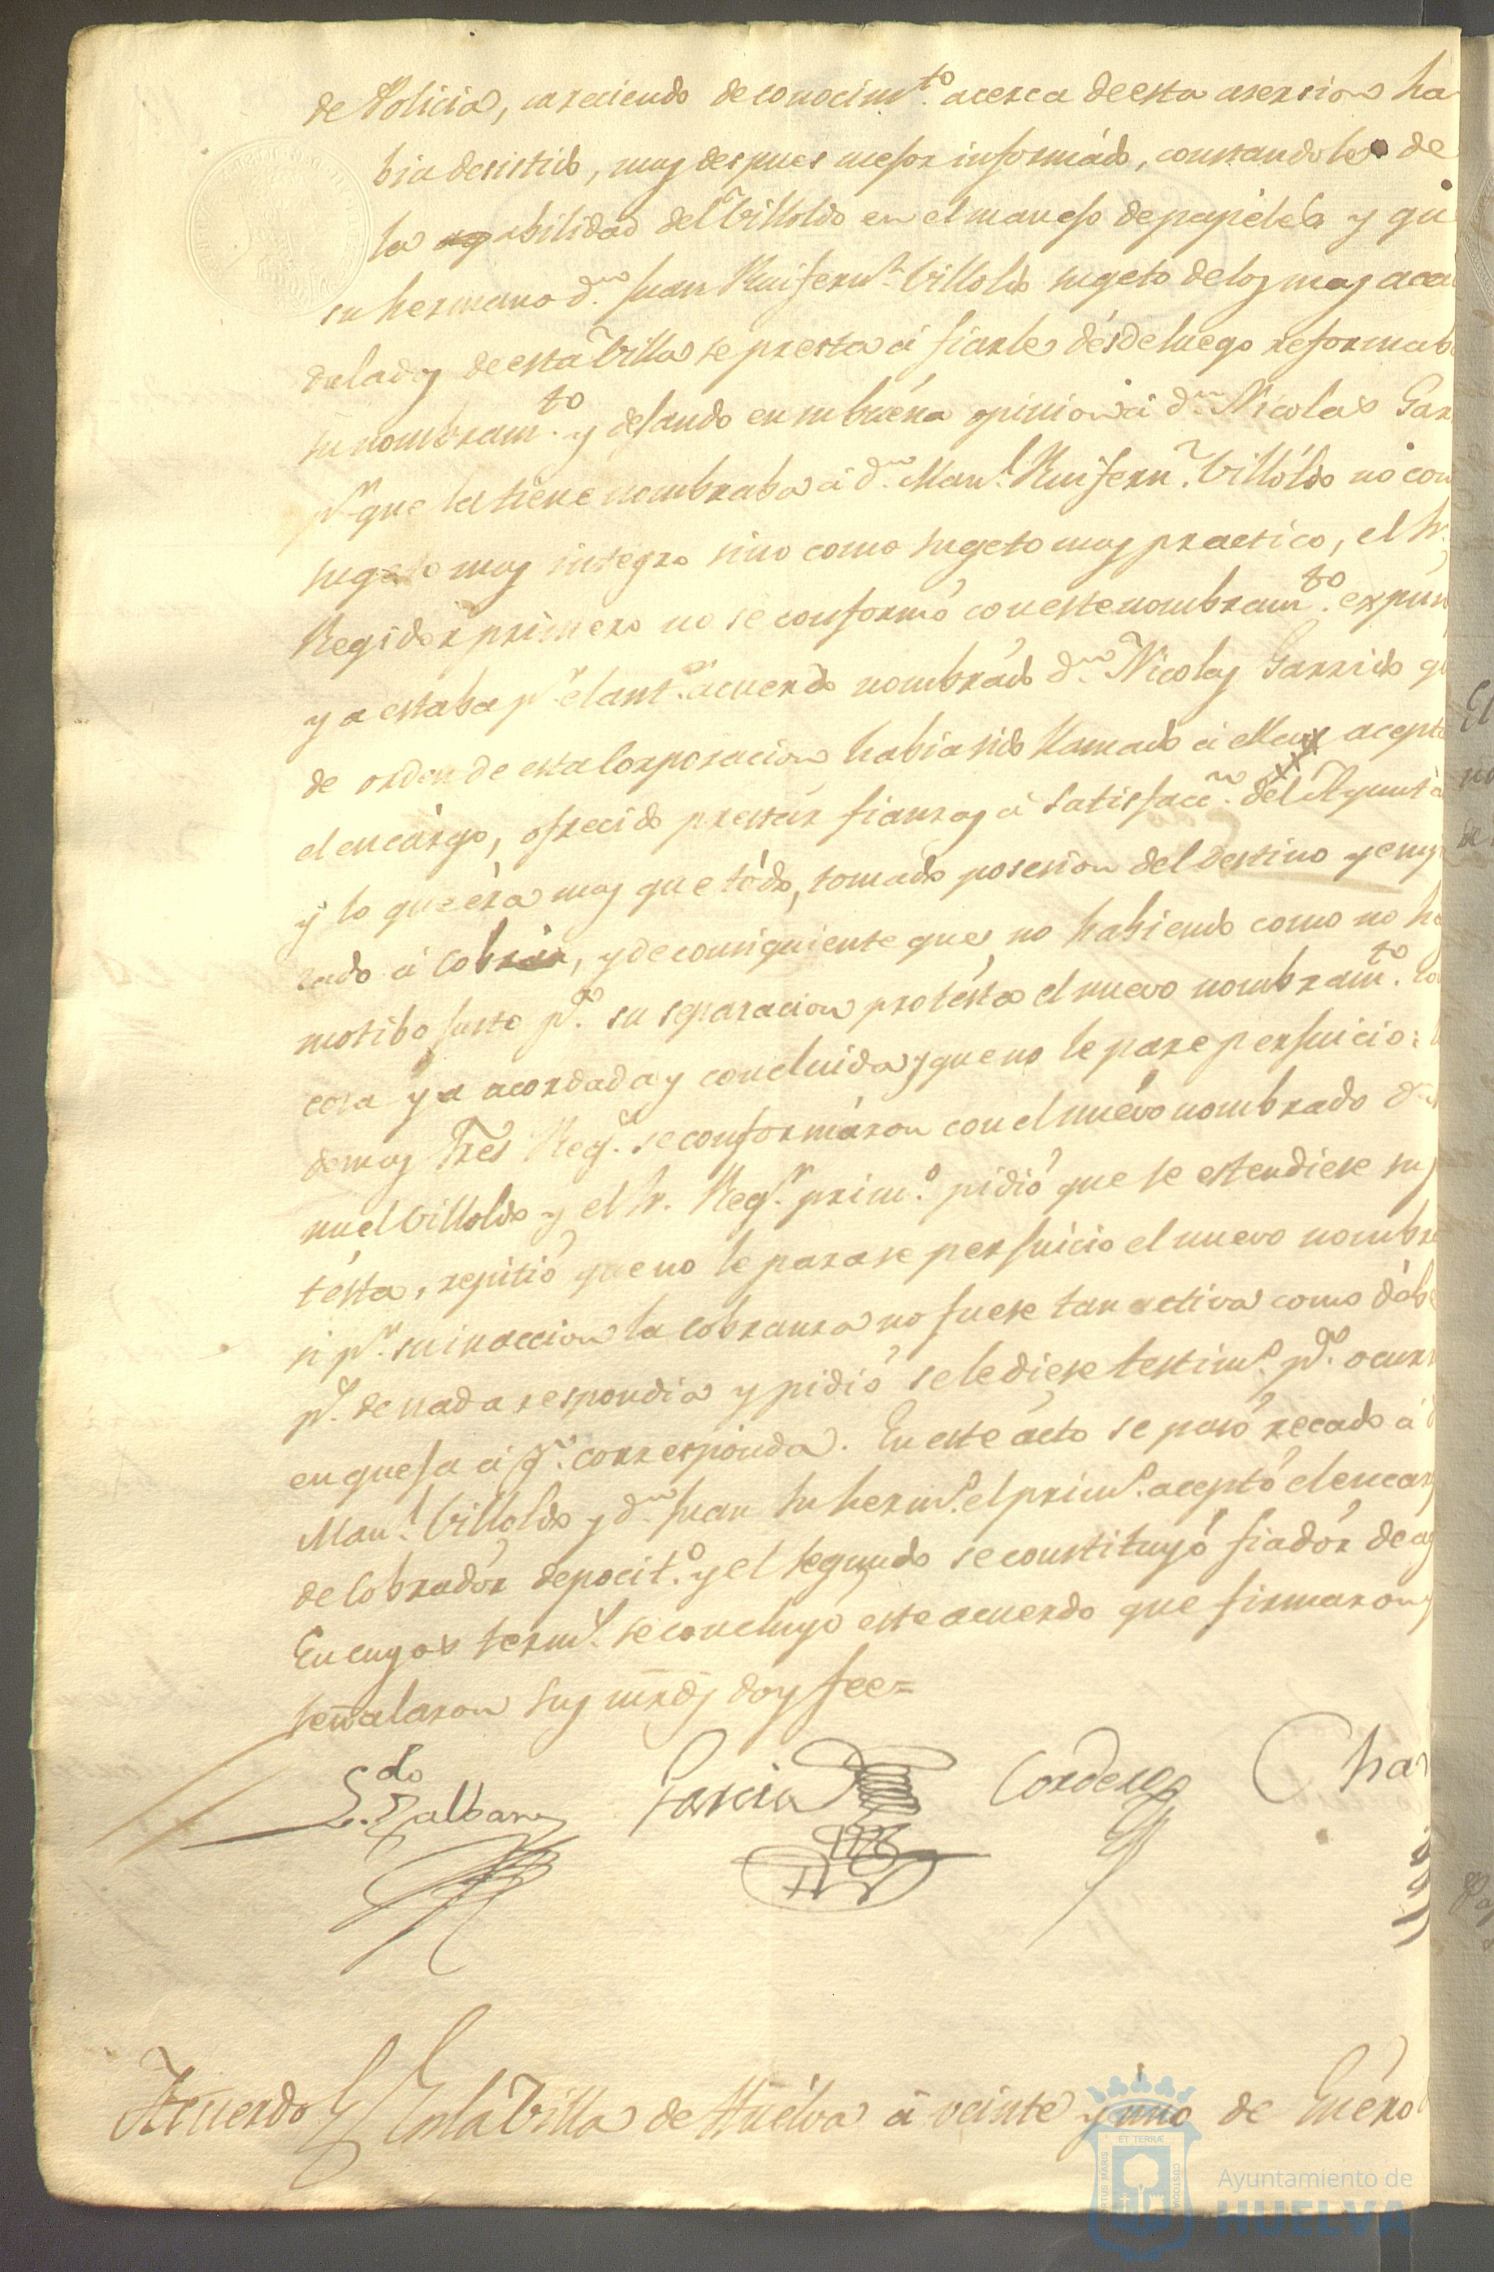 de Policia, careciendo de conocim.to acerca de esta asersion ha
bia desistido, mas despues mejor informado, constandole de
la abilidad del Villoldo en el manejo de papeles y qu
su hermano d.n Juan Ruifern.z Villoldo sugeto de los mas acau
dalados de esta Villa se presta á fiarle desde luego reformab
su nombram.to y dejando en su buena opinion á d.n Nicolas Gar
p.r que la tiene nombraba á d.n Man.l Ruifern.z Villoldo no com
sugeto mas integro sino como sugeto mas practico, el Sr.
Regidor primero no se conformó con este nombram.to expun
ya estaba p.r el ant.or acuerdo nombrado d.n Nicolas Garrido q
de orden de esta Corporacion habia sido llamado á ella, acepta
el encargo, ofrecido prestar fianzas á satisfacc.n del Ayunt
y lo que era mas que todo, tomado posesion del destino y emp
zado á cobrar, y de consiguiente que no habiendo como no ha
motibo justo p.a su separacion protesta el nuevo nombram.to co
cosa ya acordada y concluida y que no le pare perjuicio: l
demas Sres Reg.s se conformaron con el nuevo nombrado d.n
nuel Villoldo y el Sr. Reg.r prim.o pidió que se estendiese su p
testa, repitió que no le parase perjuicio el nuevo nombra
si p.r su inaccion la cobranza no fuese tan activa como debe
p.s de nada respondia y pidió se le diese testim.o p.a ocurr
en queja á q.n corresponda. En este acto se pasó recado á d
Man.l Villoldo y d.n Juan su herm.o el prim.o aceptó el encarg
de Cobrador deposit.o y el segundo se constituyó fiador de aq
En cuyos term.s se concluyó este acuerdo que firmaron y
señalaron sus mrds doy fee=
L.do Galban Garcia Cordero Cha
Acuerdo En la Villa de Huelva á veinte y uno de Enero
ET TERRÆ
PORTUS MARIS
CUSTODIA
Ayuntamiento de
HUELVA